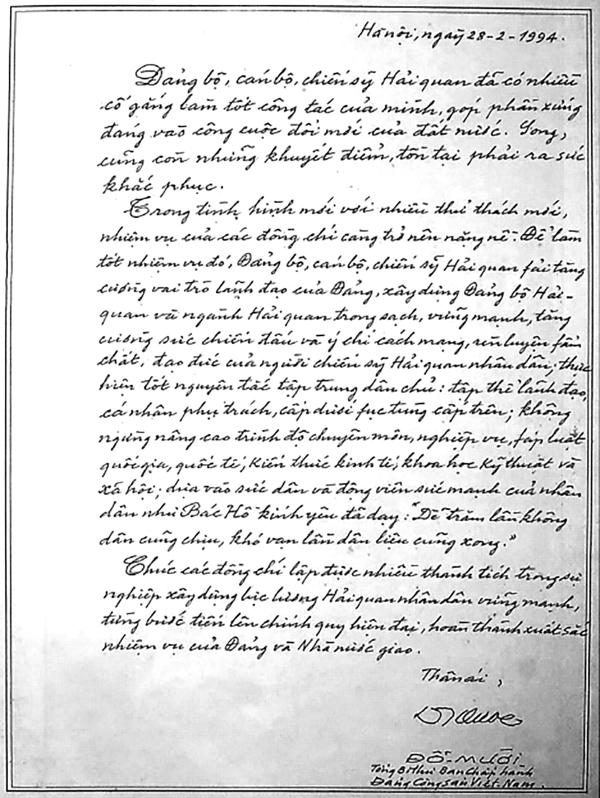 Hà nội, ngày 28-2-1994.
Đảng bộ, cán bộ, chiến sỹ Hải quan đã có nhiều
cố gắng làm tốt công tác của mình, góp phần xứng
đáng vào công cuộc đổi mới của đất nước. Song,
cũng còn những khuyết điểm, tồn tại phải ra sức
khắc phục.
Trong tình hình mới với nhiều thử thách mới,
nhiệm vụ của các đồng chí càng trở nên nặng nề. Để làm
tốt nhiệm vụ đó, Đảng bộ, cán bộ, chiến sỹ Hải quan fải tăng
cường vai trò lãnh đạo của Đảng, xây dựng Đảng bộ Hải-
quan và ngành Hải quan trong sạch, vững mạnh, tăng
cường sức chiến đấu và ý chí cách mạng, rèn luyện fẩm
chất, đạo đức của người chiến sỹ Hải quan nhân dân; thực
hiện tốt nguyên tắc tập trung dân chủ: tập thể lãnh đạo,
cá nhân phụ trách, cấp dưới fục tùng cấp trên; không
ngừng nâng cao trình độ chuyên môn, nghiệp vụ, fáp luật
quốc gia, quốc tế, kiến thức kinh tế, khoa học kỹ thuật và
xã hội; dựa vào sức dân và động viên sức mạnh của nhân
dân như Bác Hồ kính yêu đã dạy: "Dễ trăm lần không
dân cũng chịu, khó vạn lần dân liệu cũng xong."
Chúc các đồng chí lập được nhiều thành tích trong sự
nghiệp xây dựng lực lượng Hải quan nhân dân vững mạnh,
từng bước tiến lên chính quy hiện đại, hoàn thành xuất sắc
nhiệm vụ của Đảng và Nhà nước giao.
Thân ái,
ĐỖ-MƯỜI
Tổng Bí thư Ban Chấp hành
Đảng Cộng sản Việt Nam.